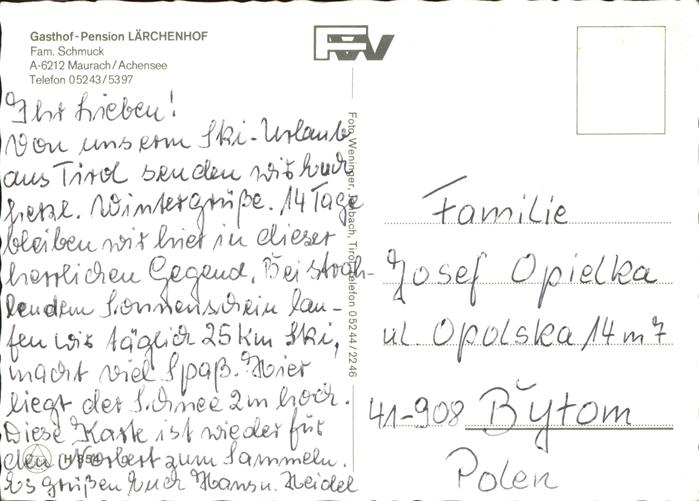 Gasthof-Pension LÄRCHENHOF
Fam. Schmuck
A-6212 Maurach/Achensee
Telefon 05243/5397
Ihr Lieben!
Von unserm Ski-Urlaub
aus Tirol senden wir Euch
herzl. Wintergrüße. 14 Tage
bleiben wir hier in dieser
herrlichen Gegend. Bei strah-
lendem Sonnenschein lau-
fen wir täglich 25 km Ski,
macht viel Spaß. Hier
liegt der Schnee 2 m hoch.
Diese Karte ist wieder für
den Norbert zum Sammeln.
Es grüßen Euch Hans u. Heidel
Foto Weninger, Tirol, Telefon 05244/2246
Familie
Josef Opielka
ul. Opolska 14 m 7
41-908 Bytom
Polen